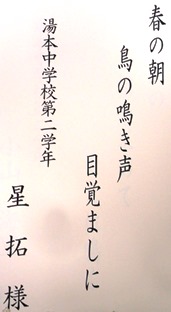 春の朝
鳥の鳴き声
目覚ましに
湯本中学校第二学年
星拓様